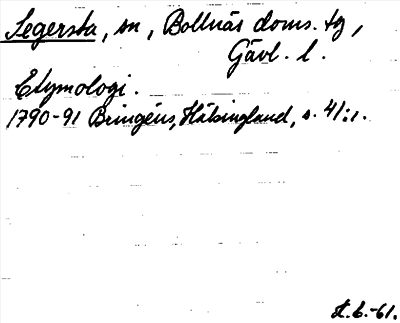 Segersta, sn, Bollnäs doms. tg,
Gävl. l.
Etymologi.
1790-91 Bringéus, Hälsingland, s. 41:1.
st. 6.-61.